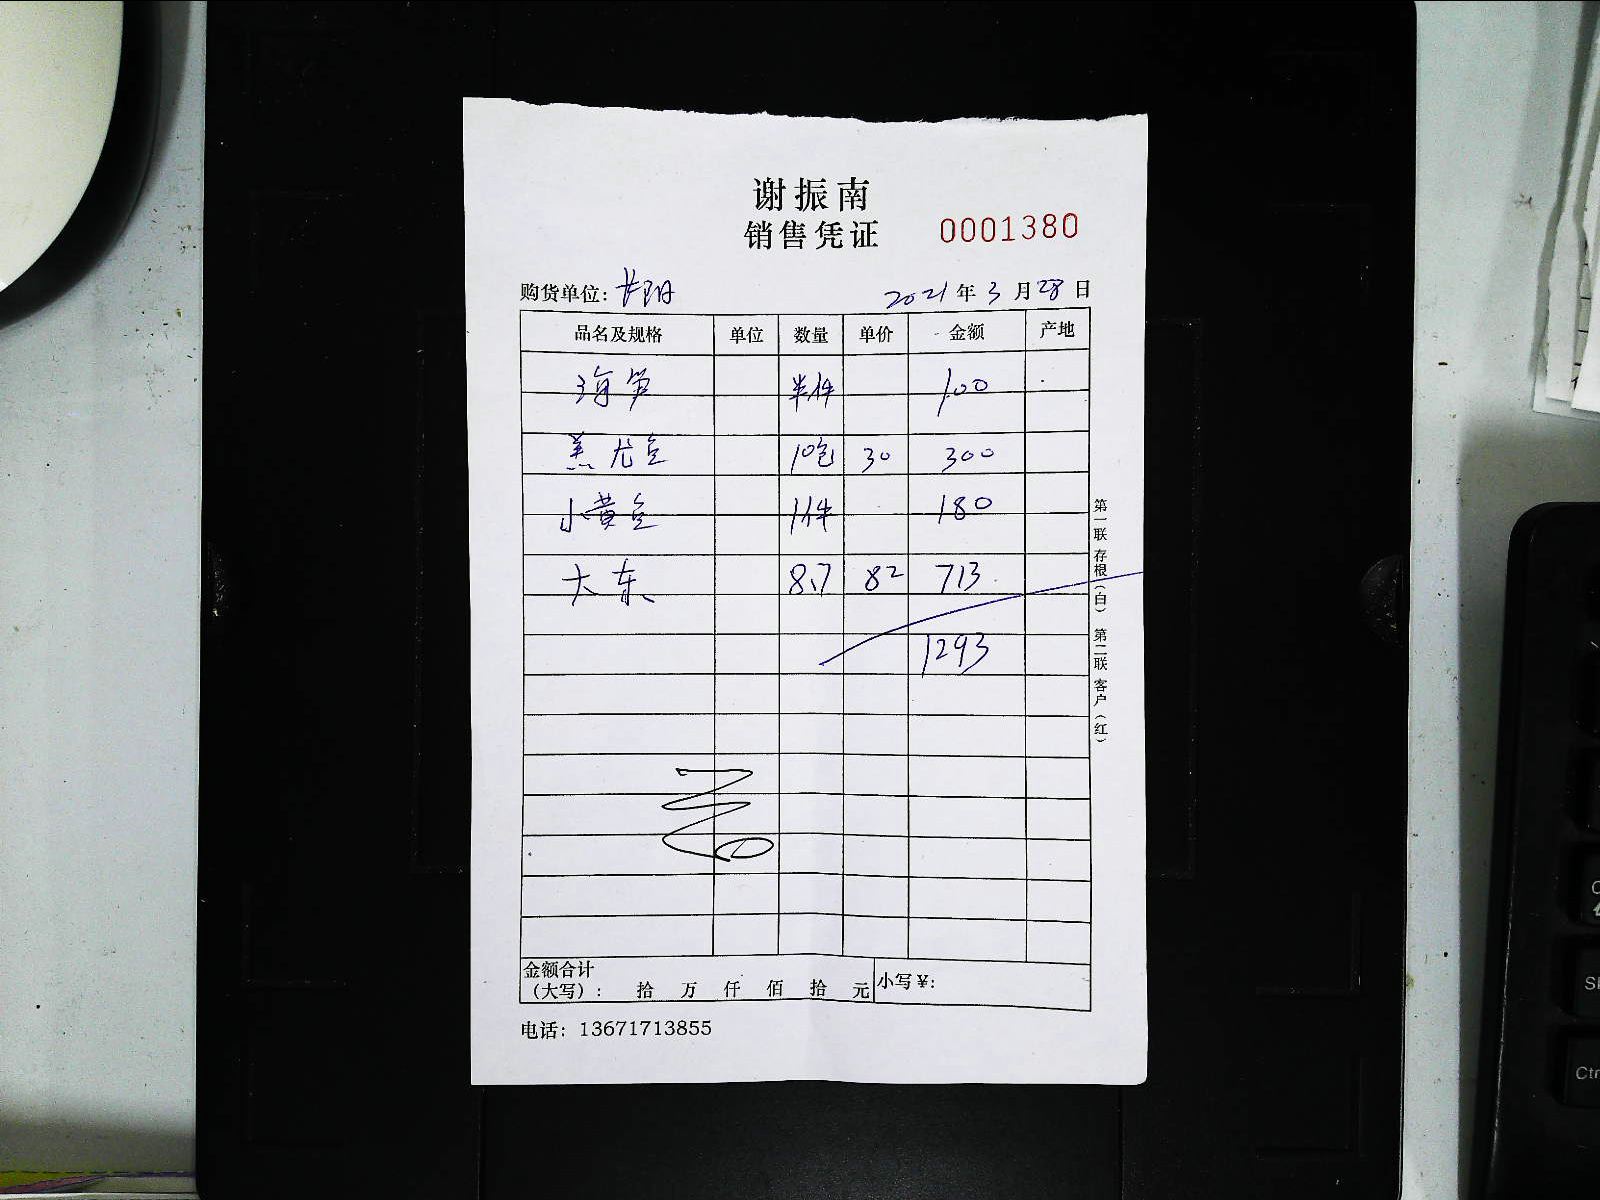 谢振南
销售凭证 0001380
购货单位: 长阳 2021 年 3 月 28 日
品名及规格 单位 数量 单价 金额 产地
海笋 半件 100
10包 30 300
小黄 1件 180
大东 8.7 82 713
1293
第一联 存根(白) 第二联 客户(红)
金额合计
(大写): 拾 万 仟 佰 拾 元 小写¥:
电话: 13671713855